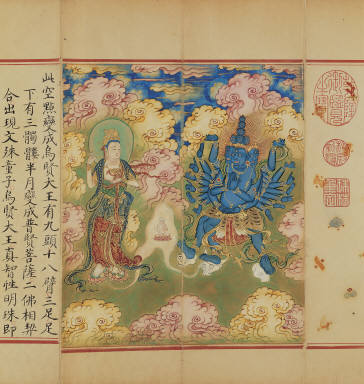 此空點變成烏賢大王有九頭十八臂三足足
下有三髑髏半月變成普賢菩薩二佛相契
合出現文殊童子烏賢大王真智性明珠即